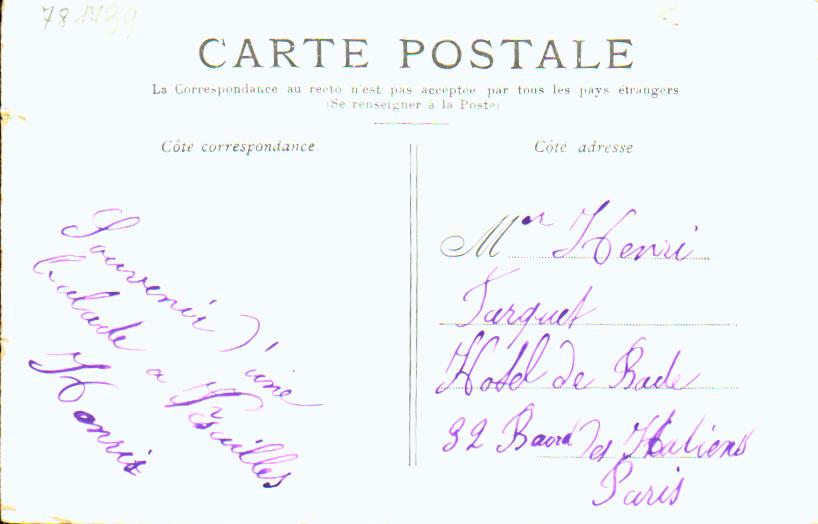 781739
CARTE POSTALE
La Correspondance au recto n'est pas acceptée par tous les pays étrangers
(Se renseigner à la Poste)
Côté correspondance
Souvenir d'une
balade a Vsailles
Henri
Côté adresse
Mr Henri
Farguet
Hotel de Bade
32 Bard des Italiens
Paris